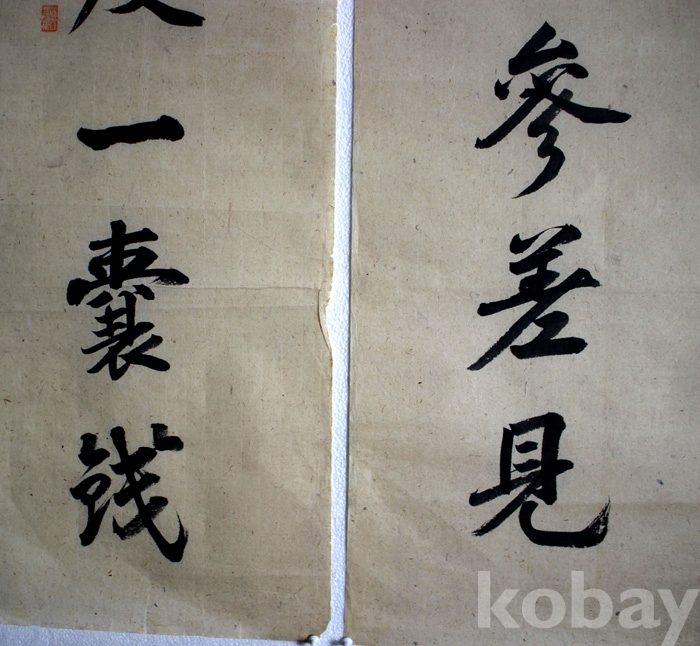 參差見
一囊錢
kobay